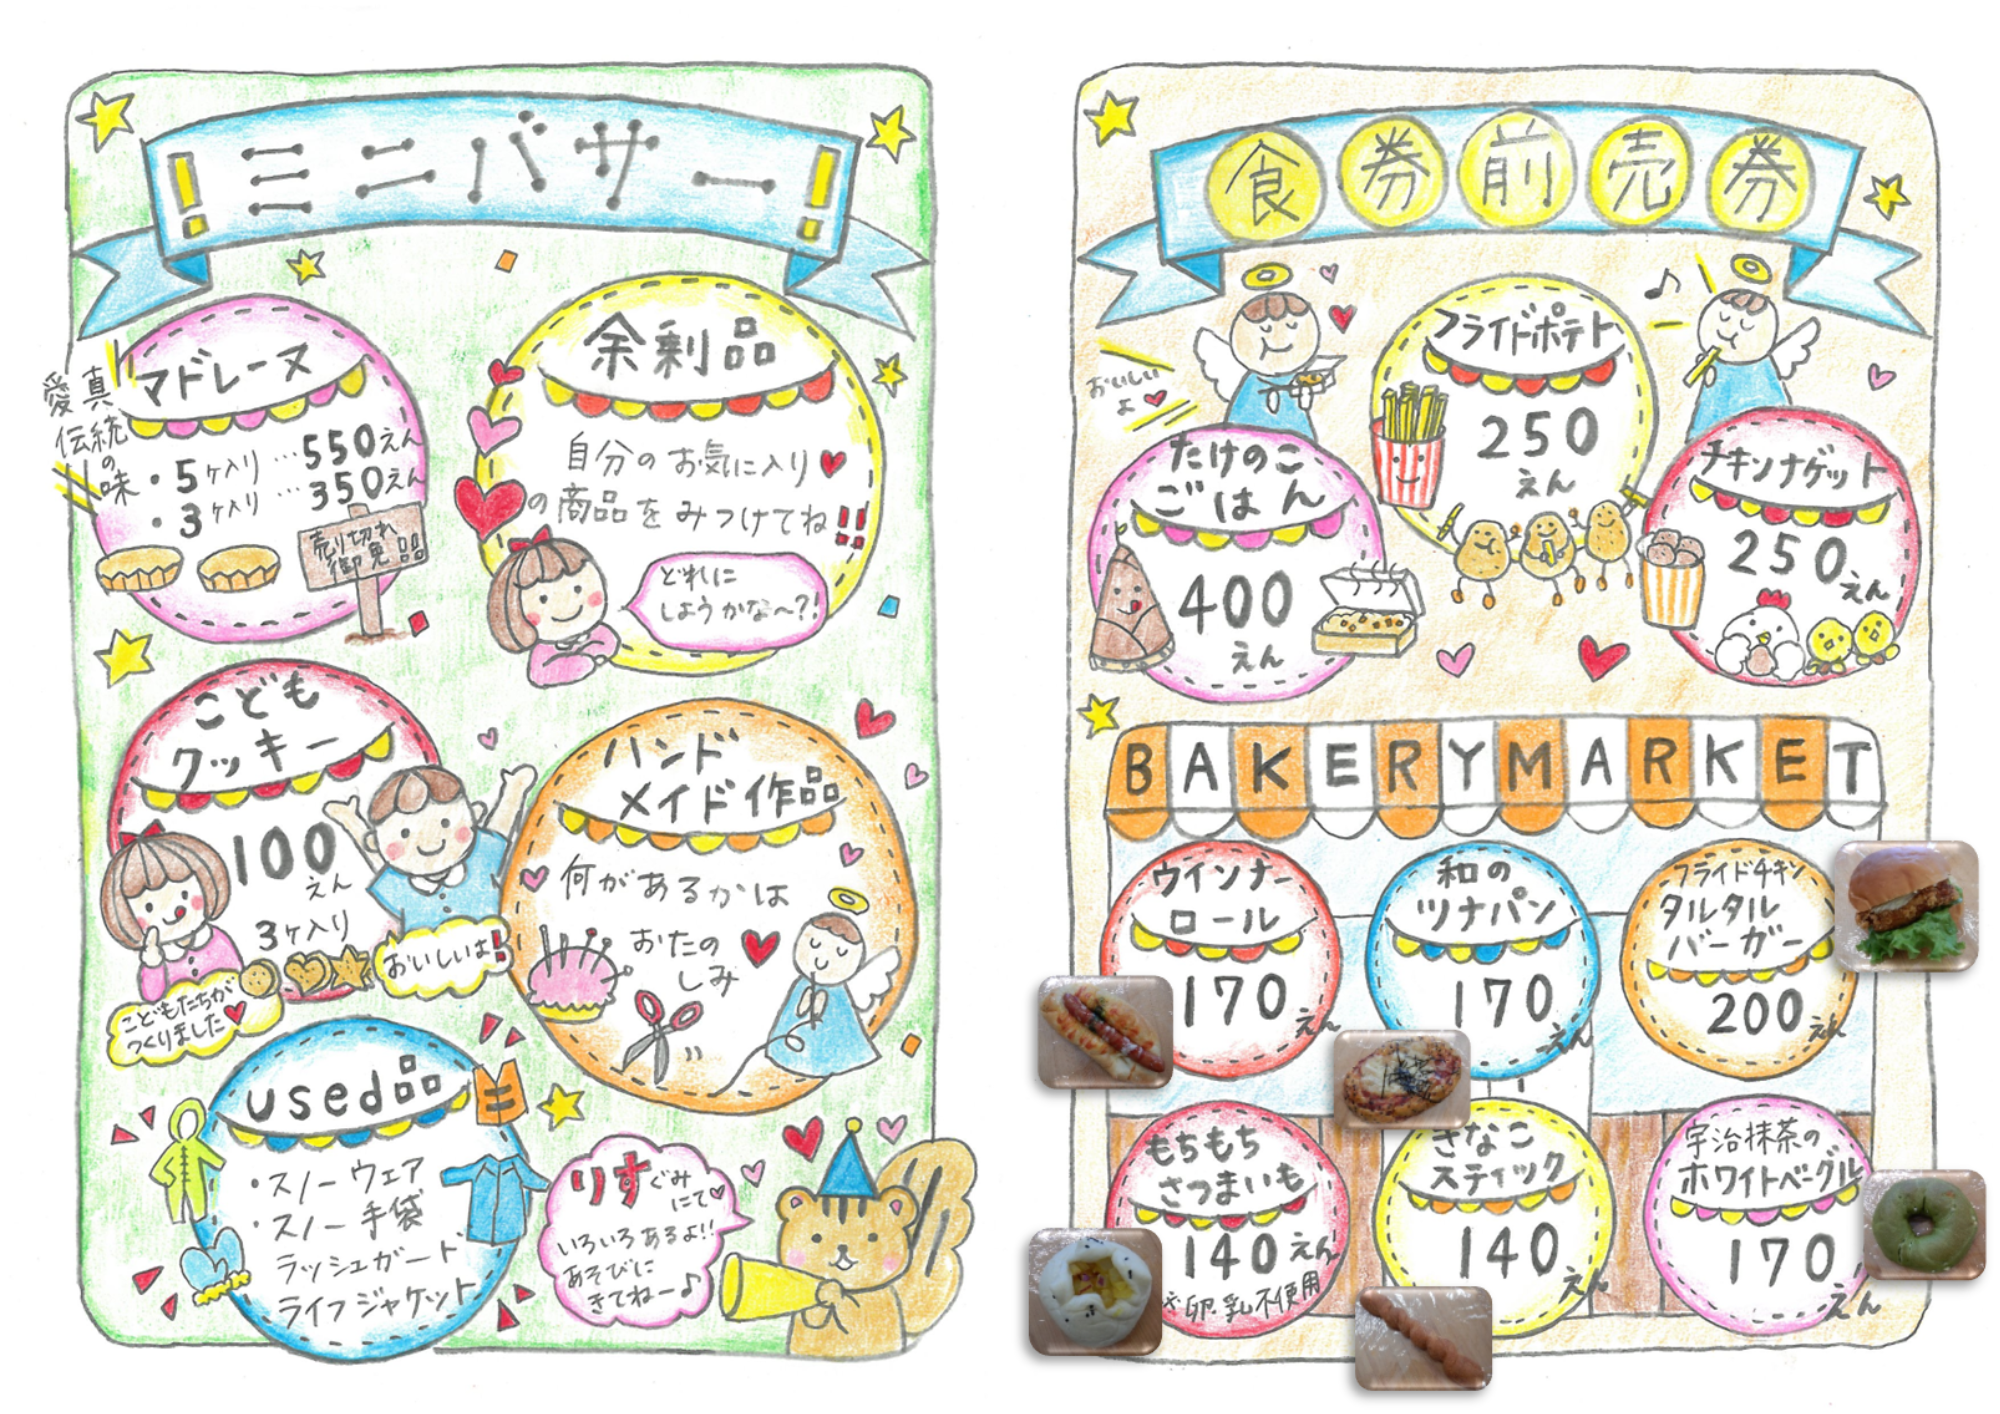 !ミニバザー!
マドレーヌ
愛真
伝統
の
味
・5ヶ入り…550えん
・3ヶ入り…350えん
売り切れ
御免!!
余剰品
自分のお気に入り
の商品をみつけてね!!
どれに
しようかな~?!
こども
クッキー
100
えん
3ヶ入り
おいしいは!
こどもたちが
つくりました
ハンド
メイド作品
何があるかは
おたの
しみ
used品
・スノーウェア
・スノー手袋
ラッシュガード
ライフジャケット
りすぐみ
にて
いろいろあるよ!!
あそびに
きてねー♪
食券前売券
おいしい
よ
フライドポテト
250
えん
たけのこ
ごはん
400
えん
チキンナゲット
250えん
BAKERY MARKET
ウインナー
ロール
170
えん
和の
ツナパン
170
えん
フライドチキン
タルタル
バーガー
200えん
もちもち
さつまいも
140えん
※卵.乳不使用
きなこ
スティック
140
えん
宇治抹茶の
ホワイトベーグル
170
えん